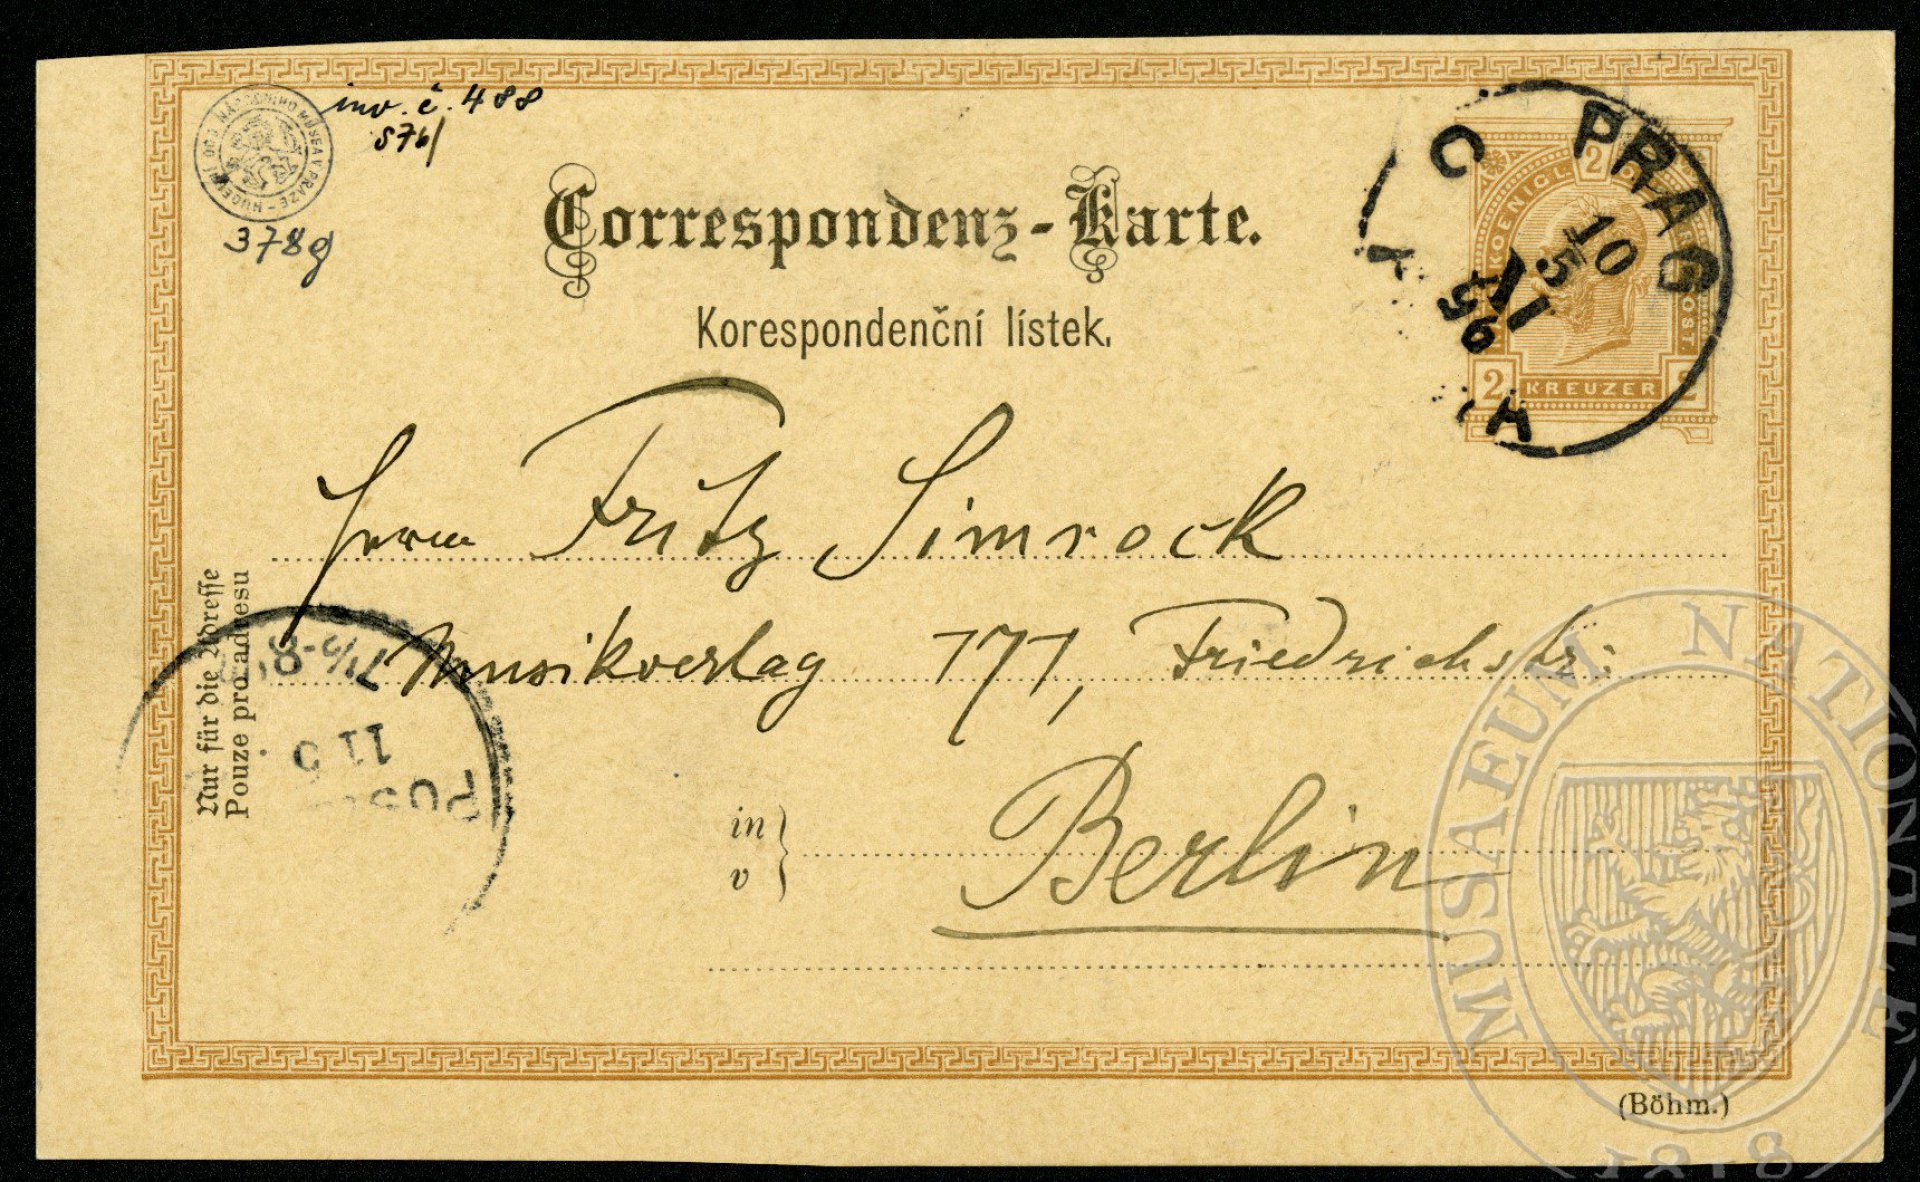 inv. č. 488
S76/
HUDEBNÍ ODD. NÁRODNÍHO MUSEA V PRAZE
378g
Correspondenz-Karte.
Korespondenční lístek.
PRAG
10
5
XI
96
2
2 KREUZER 2
Herrn Fritz Simrock
Musikverlag 171, Friedrichstr:
in
v
Berlin
Nur für die Adresse
Pouze pro adresu
11 5
(Böhm.)
MUSAEUM NATIONALE
1818